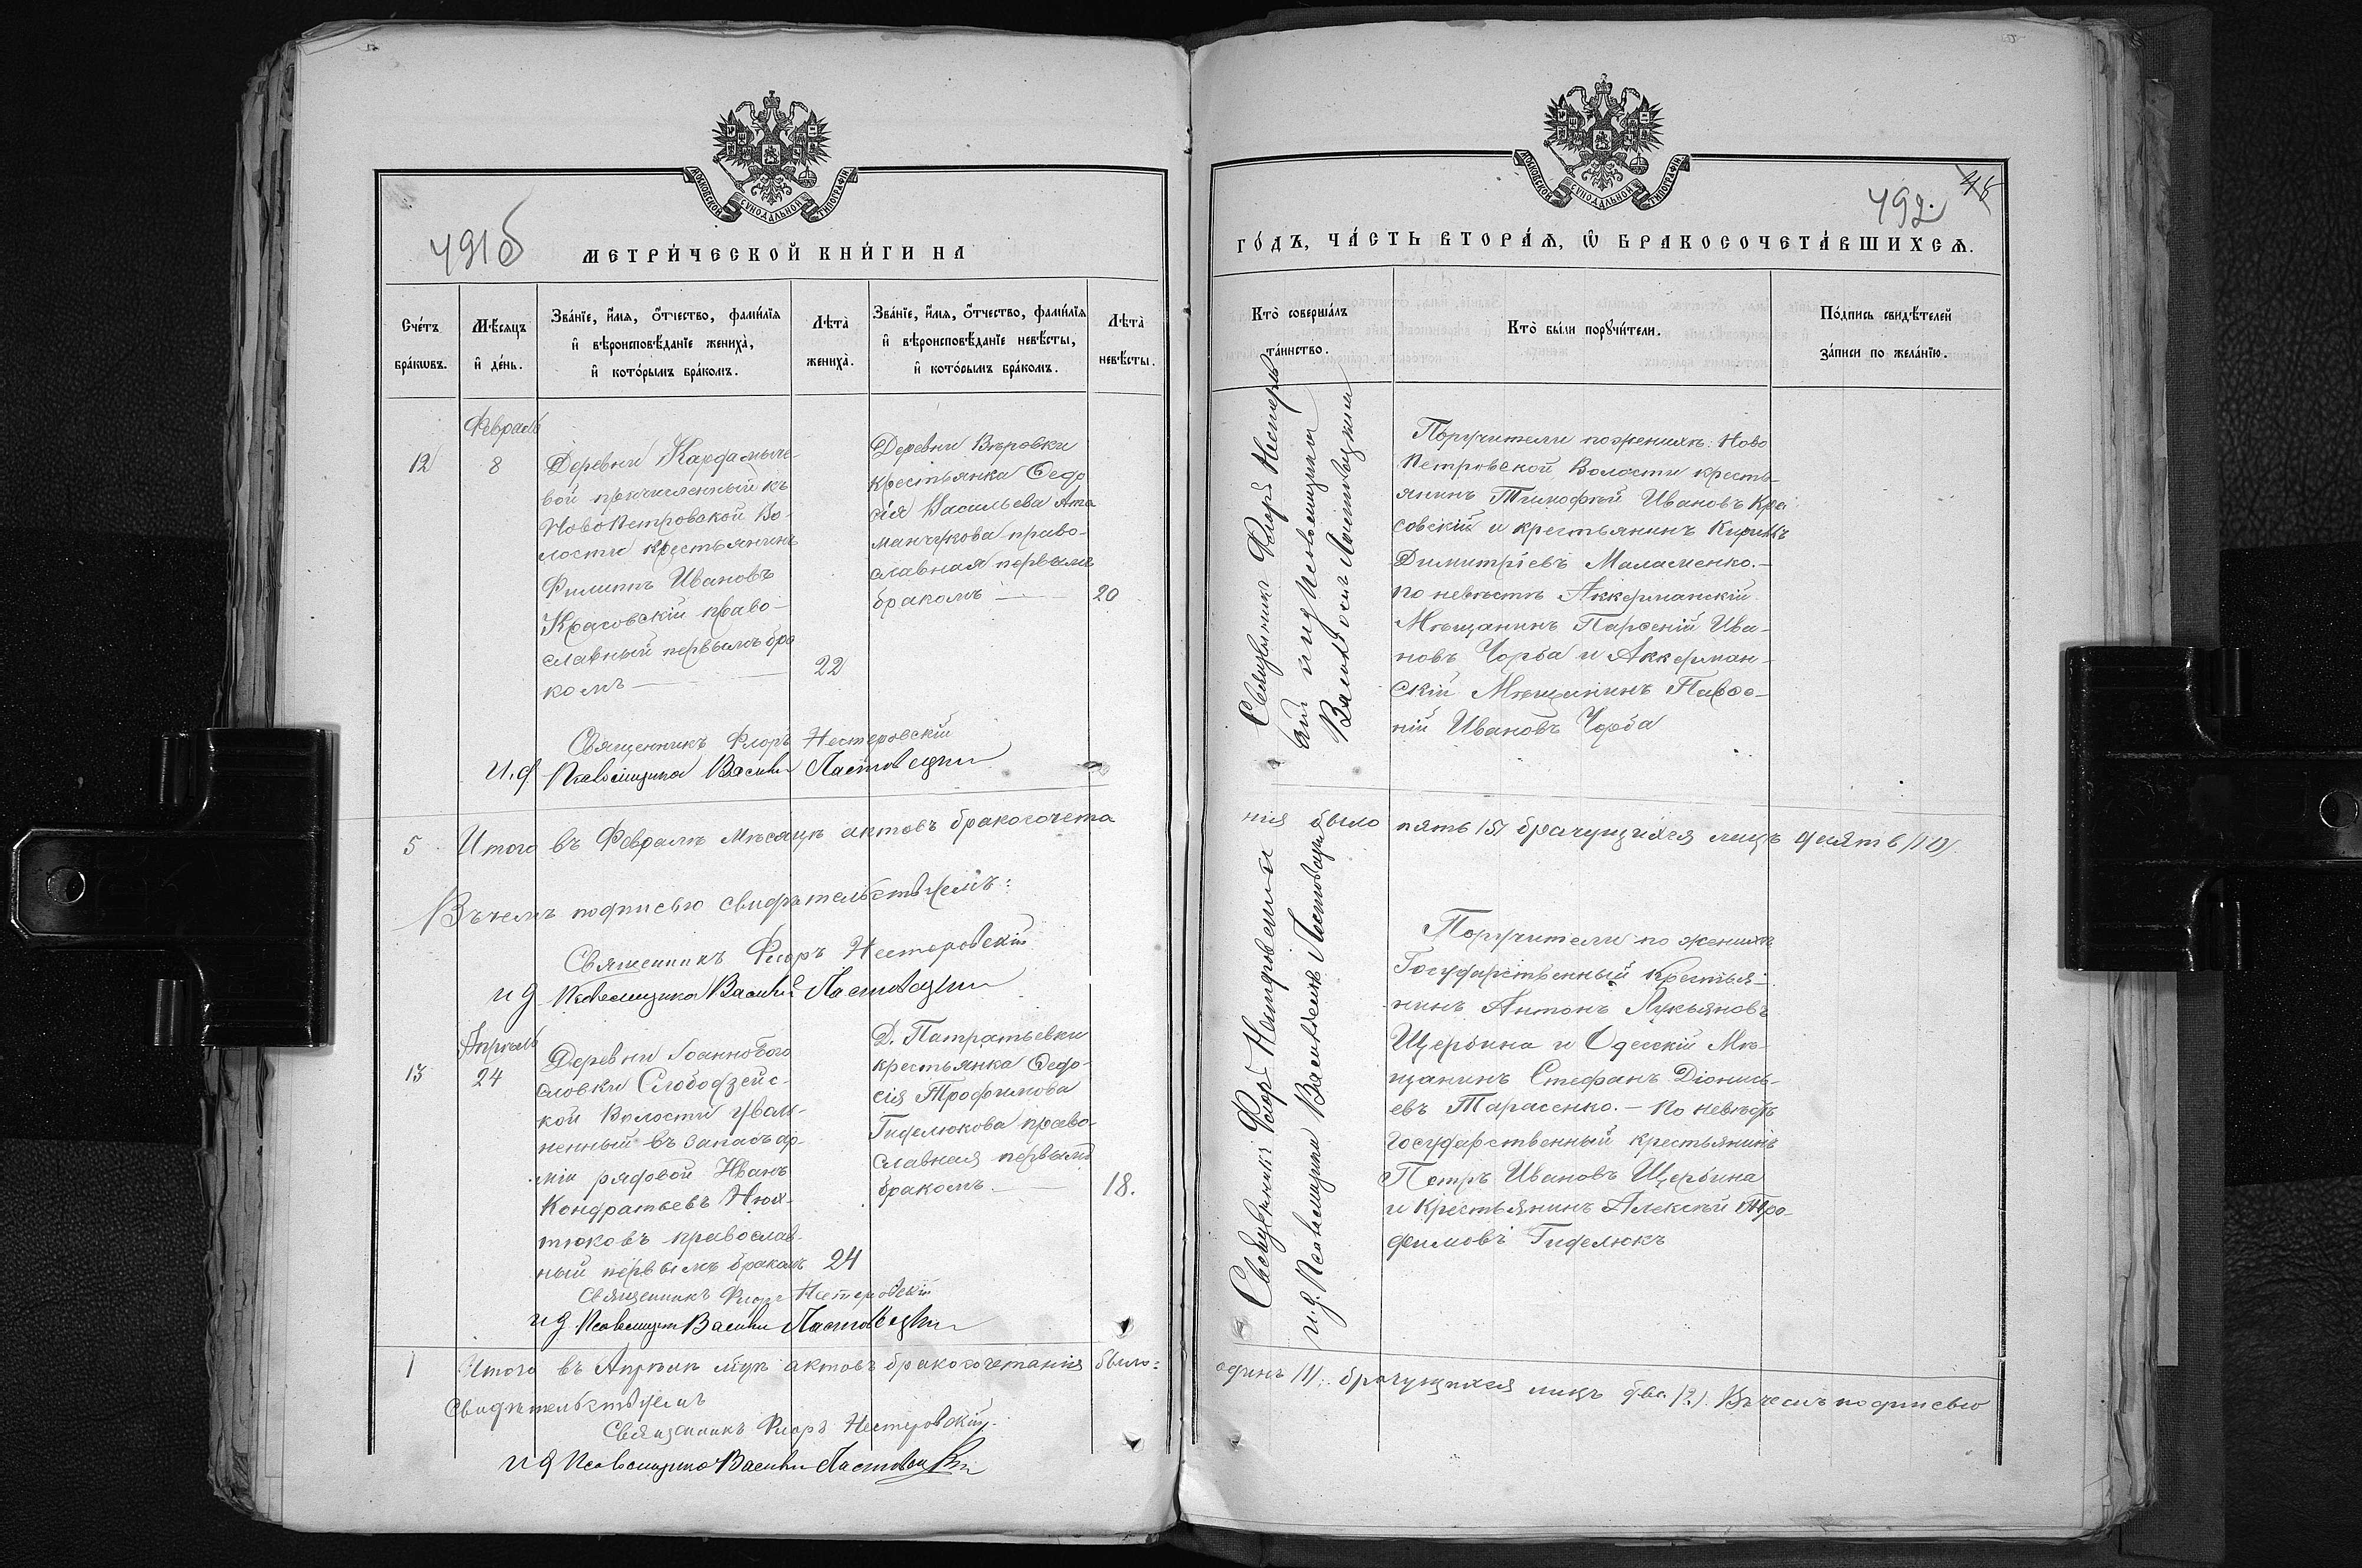 МОСКОВСКОЙ СѴНОДАЛЬНОЙ ТИПОГРАФІИ
491б
МЕТРИ́ЧЕСКОЙ КНИ́ГИ НА
Сче́тъ бра́кѡвъ.
Мѣ́сяцъ и҆ де́нь.
Зва́нїе, и҆́мя, ѻ҆́тчество, фами́лїя и҆ вѣроисповѣ́данїе жениха̀, и҆ кото́рымъ бра́комъ.
Лѣта̀ жениха̀.
Зва́нїе, и҆́мя, ѻ҆́тчество, фами́лїя и҆ вѣроисповѣ́данїе невѣ́сты, и҆ кото́рымъ бра́комъ.
Лѣта̀ невѣ́сты.
Февраль
12
8
Деревни Кардамыче-
вой причисленный къ
Новопетровской Во-
лости крестьянинъ
Филиппъ Ивановъ
Красовскій право-
славный первымъ бра
комъ
22
Деревни Вѣровки
крестьянка Ѳедо
сія Васильева Ата
манчукова право-
славная первымъ
бракомъ
20
Священникъ Флоръ Нестеровскій
и.д Псаломщика Василій Ластовецкій
5 Итого въ Февралѣ мѣсяцѣ актовъ бракосочета
Въ чемъ подписью свидѣтельствуемъ:
Священникъ Флоръ Нестеровскій
и д Псаломщика Василій Ластовецкій
Апрѣль
13
24
Деревни Іоаннового
словки Слободзейс-
кой Волости уволь-
ненный въ запасъ ар-
міи рядовой Иванъ
Кондратьевъ Нюн-
тюковъ православ-
ный первымъ бракомъ
24
Д. Патратьевки
крестьянка Ѳедо-
сія Трофимова
Гиделюкова право-
славная первымъ
бракомъ
18.
Священникъ Флоръ Нестеровскій
и д Псаломщика Василій Ластовецкій
1 Итого въ Апрѣлѣ мцѣ актовъ бракосочетанія было:
Свидѣтельствуемъ
Священникъ Флоръ Нестеровскій
и д Псаломщика Василій Ластовецкій
МОСКОВСКОЙ СѴНОДАЛЬНОЙ ТИПОГРАФІИ
492.
45
ГО́ДЪ, ЧА́СТЬ ВТОРА́Ѧ, Ѡ҆ БРАКОСОЧЕТА́ВШИХСѦ.
Кто̀ соверша́лъ та́инство.
Кто̀ бы́ли порꙋчи́тели.
По́дпись свидѣ́телей за́писи по жела́нїю.
Священникъ Флоръ Нестеров
скій и д Псаломщика
Василій Ластовецкій
Поручители по женихѣ: Ново
Петровской Волости кресть-
янинъ Тимофѣй Ивановъ Кра
совскій и крестьянинъ Кириллъ
Димитріевъ Маламенко.-
по невѣстѣ Аккерманскій
Мѣщанинъ Парѳеній Ива-
новъ Чорба и Аккерман-
скій Мѣщанинъ
Ивановъ Чорба
нія было пять /5/ брачущихся лицъ десять /10/.
Священникъ Флоръ Нестеровскій
и.д. Псаломщика Василій Ластовецкій
Поручители по женихѣ
Государственный Крестья-
нинъ Антонъ Лукьяновъ
Щербина и Одесскій Мѣ-
щанинъ Стефанъ Діонись-
евъ Тарасенко.- По невѣстѣ
государственный крестьянинъ
Петръ Ивановъ Щербина
и Крестьянинъ Алексѣй Тро-
фимовъ Гиделюкъ
одинъ /1/. брачущихся лицъ два /2/. Въ чемъ подписью